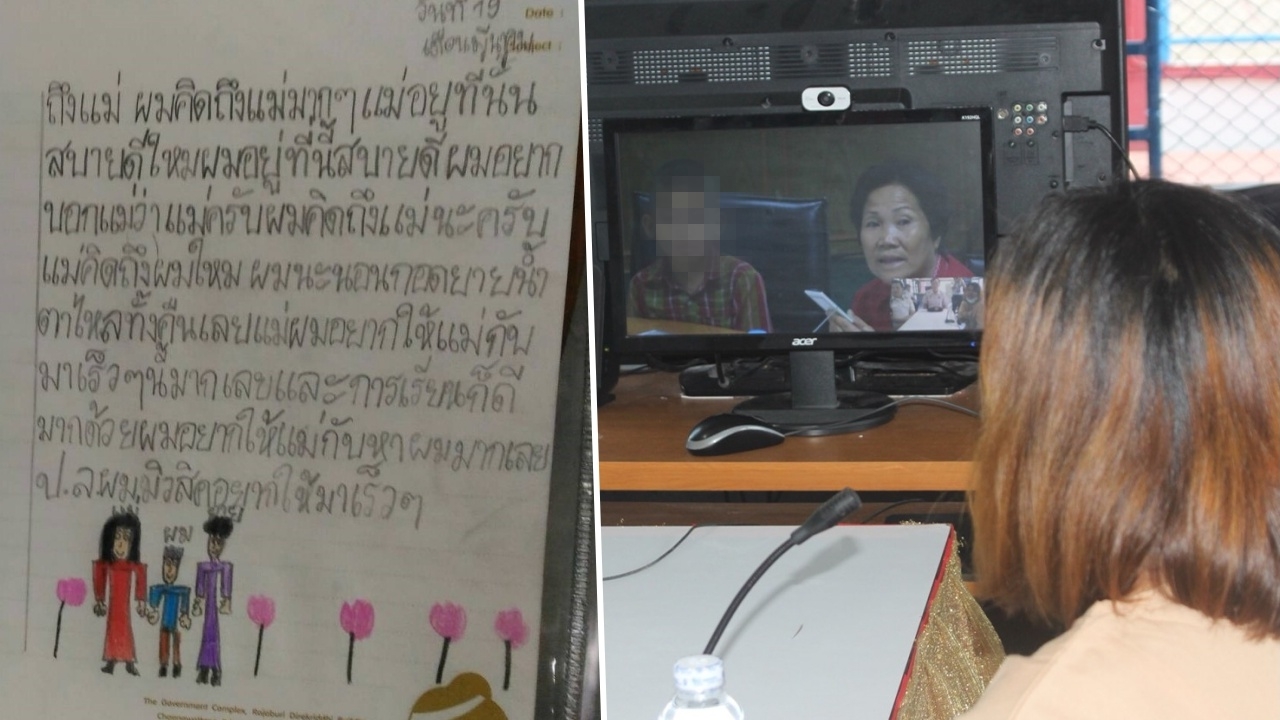 วันที่ 19
Date :
ถึงแม่ ผมคิดถึงแม่มากๆ แม่อยู่ที่นั่น
สบายดีใหมผมอยู่ที่นี่สบายดี ผมอยาก
บอกแม่ว่าแม่ครับผมคิดถึงแม่นะครับ
แม่คิดถึงผมใหม ผมนะนอนกอดยายน้ำ
ตาไหลทั้งคืนเลยแม่ผมอยากให้แม่กับ
มาเร็วๆนี้มากเลยและการเรียนก็ดี
มากด้วยผมอยากให้แม่กับหาผมมากเลย
ป.ล.ผมมิวสิคอยากให้มาเร็วๆ
แม่
ผม
ยาย
The Government Complex, Rajaburi Direkriddhi
acer